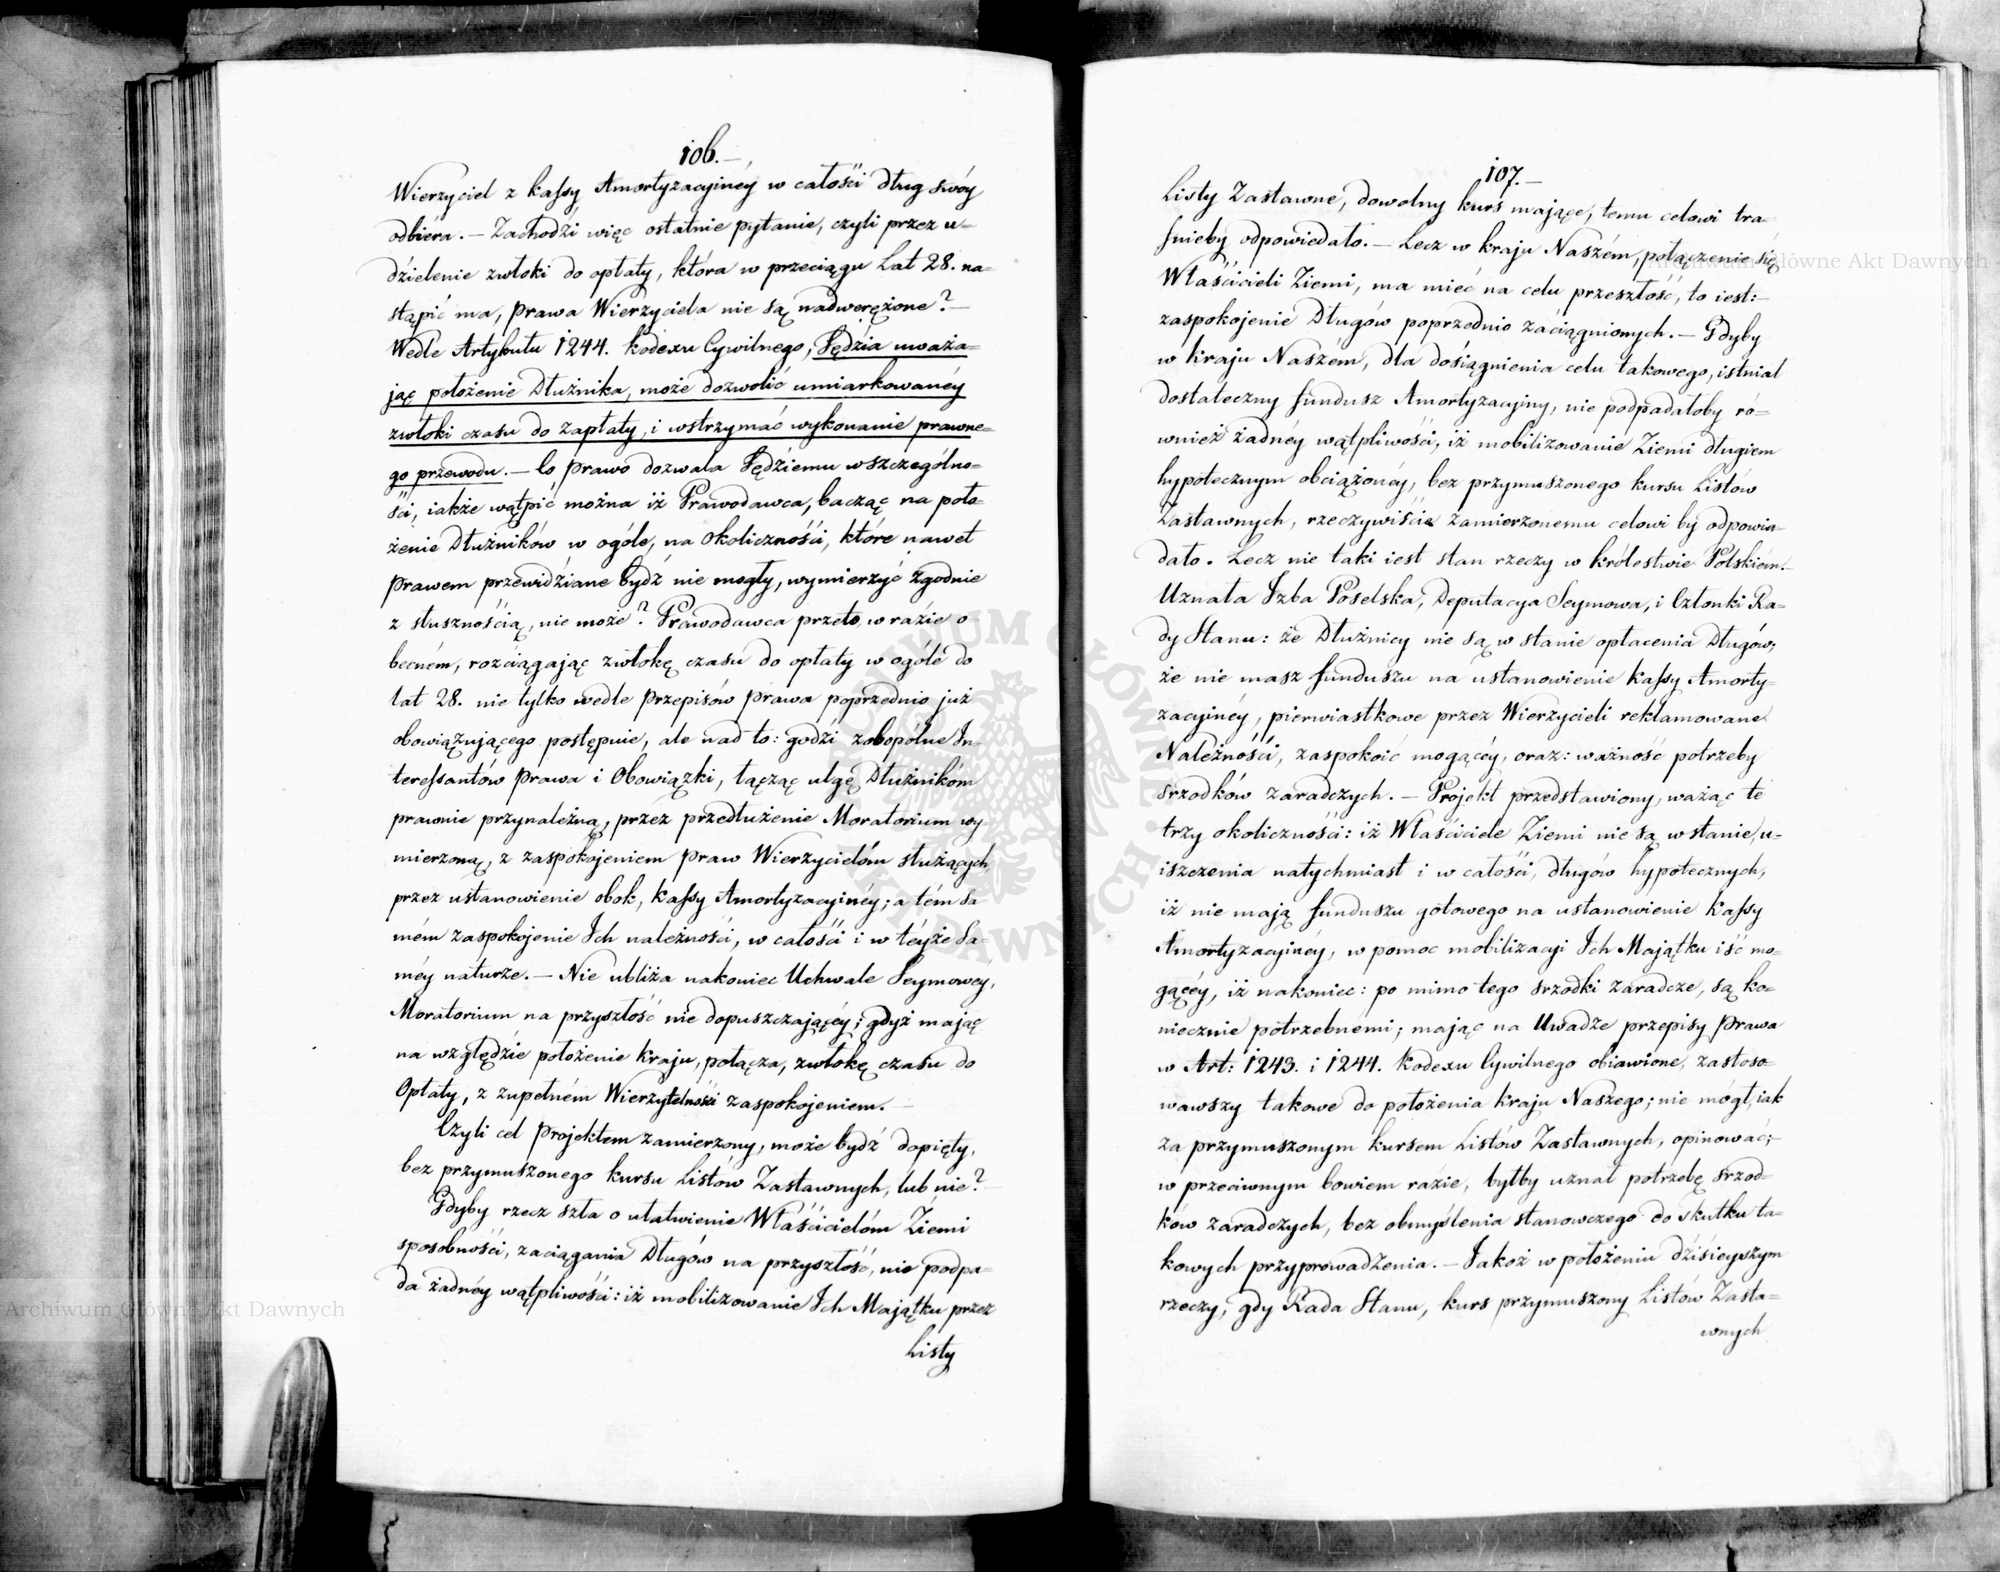 106.
Wierzyciel z kassy Amortyzacyinéy w całości dług swóy
odbiéra. — Zachodzi więc ostatnie pytanie, czyli przez u-
dzielenie zwłoki do opłaty, która w przeciągu Lat 28. na-
stąpić ma, Prawa Wierzyciela nie są nadwerężone? —
Wedle Artykułu 1244. Kodexu Cywilnego, Sędzia uważa-
jąc położenie Dłużnika, może dozwolić umiarkowanéy
zwłoki czasu do zapłaty, i wstrzymać wykonanie prawne-
go przewodu. — Co Prawo dozwala Sędziemu w szczególno-
ści, iakże wątpić można iż Prawodawca, bacząc na poło-
żenie Dłużników w ogóle, na okoliczności, które nawet
Prawem przewidziane bydź nie mogły, wymierzyć zgodnie
z słusznością, nie może? Prawodawca przeto, w razie o-
becném, rozciągając zwłokę czasu do opłaty w ogóle do
lat 28. nie tylko wedle Przepisów Prawa poprzednio już
obowiązującego postępuie, ale nad to: godzi zobopólne In-
teressantów Prawa i Obowiązki, łącząc ulgę Dłużnikóm
prawnie przynależną, przez przedłużenie Moratorium wy-
mierzoną, z zaspokojeniem Praw Wierzycielóm służących,
przez ustanowienie obok, Kassy Amortyzacyinéy; a tém sa
mém zaspokojenie Ich należności, w całości i w téyże sa-
méy naturze. — Nie ubliża nakoniec Uchwale Seymowéy,
Moratorium na przyszłość nie dopuszczającéy; gdyż mając
na względzie położenie kraju, połącza, zwłokę czasu do
Opłaty, z zupełném Wierzytelności zaspokojeniem. —
Czyli cel Projektem zamierzony, może bydź dopięty,
bez przymuszonego kursu Listów Zastawnych, lub nie? —
Gdyby rzecz szła o ułatwienie Właścicielóm Ziemi
sposobności, zaciągania Długów na przyszłość, nie podpa-
da żadnéy wątpliwości: iż mobilizowanie Ich Majątku przez
Listy
107.
Listy Zastawne, dowolny kurs mające, temu celowi tra-
fnieby odpowiedało. — Lecz w kraju Naszém, połączenie się
Właścicieli Ziemi, ma mieć na celu przeszłość, to iest:
zaspokojenie Długów poprzednio zaciągnionych. — Gdyby
w kraju Naszém, dla dosiągnienia celu takowego, istniał
dostateczny fundusz Amortyzacyiny, nie podpadałoby ró-
wnież żadnéy wątpliwości, iż mobilizowanie Ziemi długiem
hypotecznym obciążonéy, bez przymuszonego kursu Listów
Zastawnych, rzeczywiście zamierzonemu celowi by odpowia-
dało. Lecz nie taki iest stan rzeczy w Królestwie Polskiém.
Uznała Izba Poselska, Deputacya Seymowa, i Członki Ra-
dy Stanu: że Dłużnicy nie są w stanie opłacenia Długów,
że nie masz funduszu na ustanowienie Kassy Amorty-
zacyinéy, pierwiastkowe przez Wierzycieli reklamowane
Należności, zaspokoić mogącéy, oraz: ważność potrzeby
srzodków zaradczych. — Projekt przedstawiony, ważąc te
trzy okoliczności: iż Właściciele Ziemi nie są w stanie, u-
iszczenia natychmiast i w całości, długów hypotecznych,
iż nie mają funduszu gotowego na ustanowienie Kassy
Amortyzacyinéy, w pomoc mobilizacyi Ich Majątku iść mo-
gącéy, iż nakoniec: po mimo tego srzodki zaradcze, są ko-
niecznie potrzebnemi; mając na Uwadze przepisy Prawa
w Art: 1243. i 1244. Kodexu Cywilnego obiawione, zastoso-
wawszy takowe do położenia kraju Naszego; nie mógł, iak
za przymuszonym kursem Listów Zastawnych, opinować;
w przeciwnym bowiem razie, byłby uznał potrzebę srzod-
ków zaradczych, bez obmyślenia stanowczego do skutku ta-
kowych przyprowadzenia. — Jakoż w położeniu dzisieyszym
rzeczy, gdy Rada Stanu, kurs przymuszony Listów Zasta-
wnych
Archiwum Główne Akt Dawnych
Archiwum Główne Akt Dawnych
ARCHIWUM GŁÓWNE AKT DAWNYCH